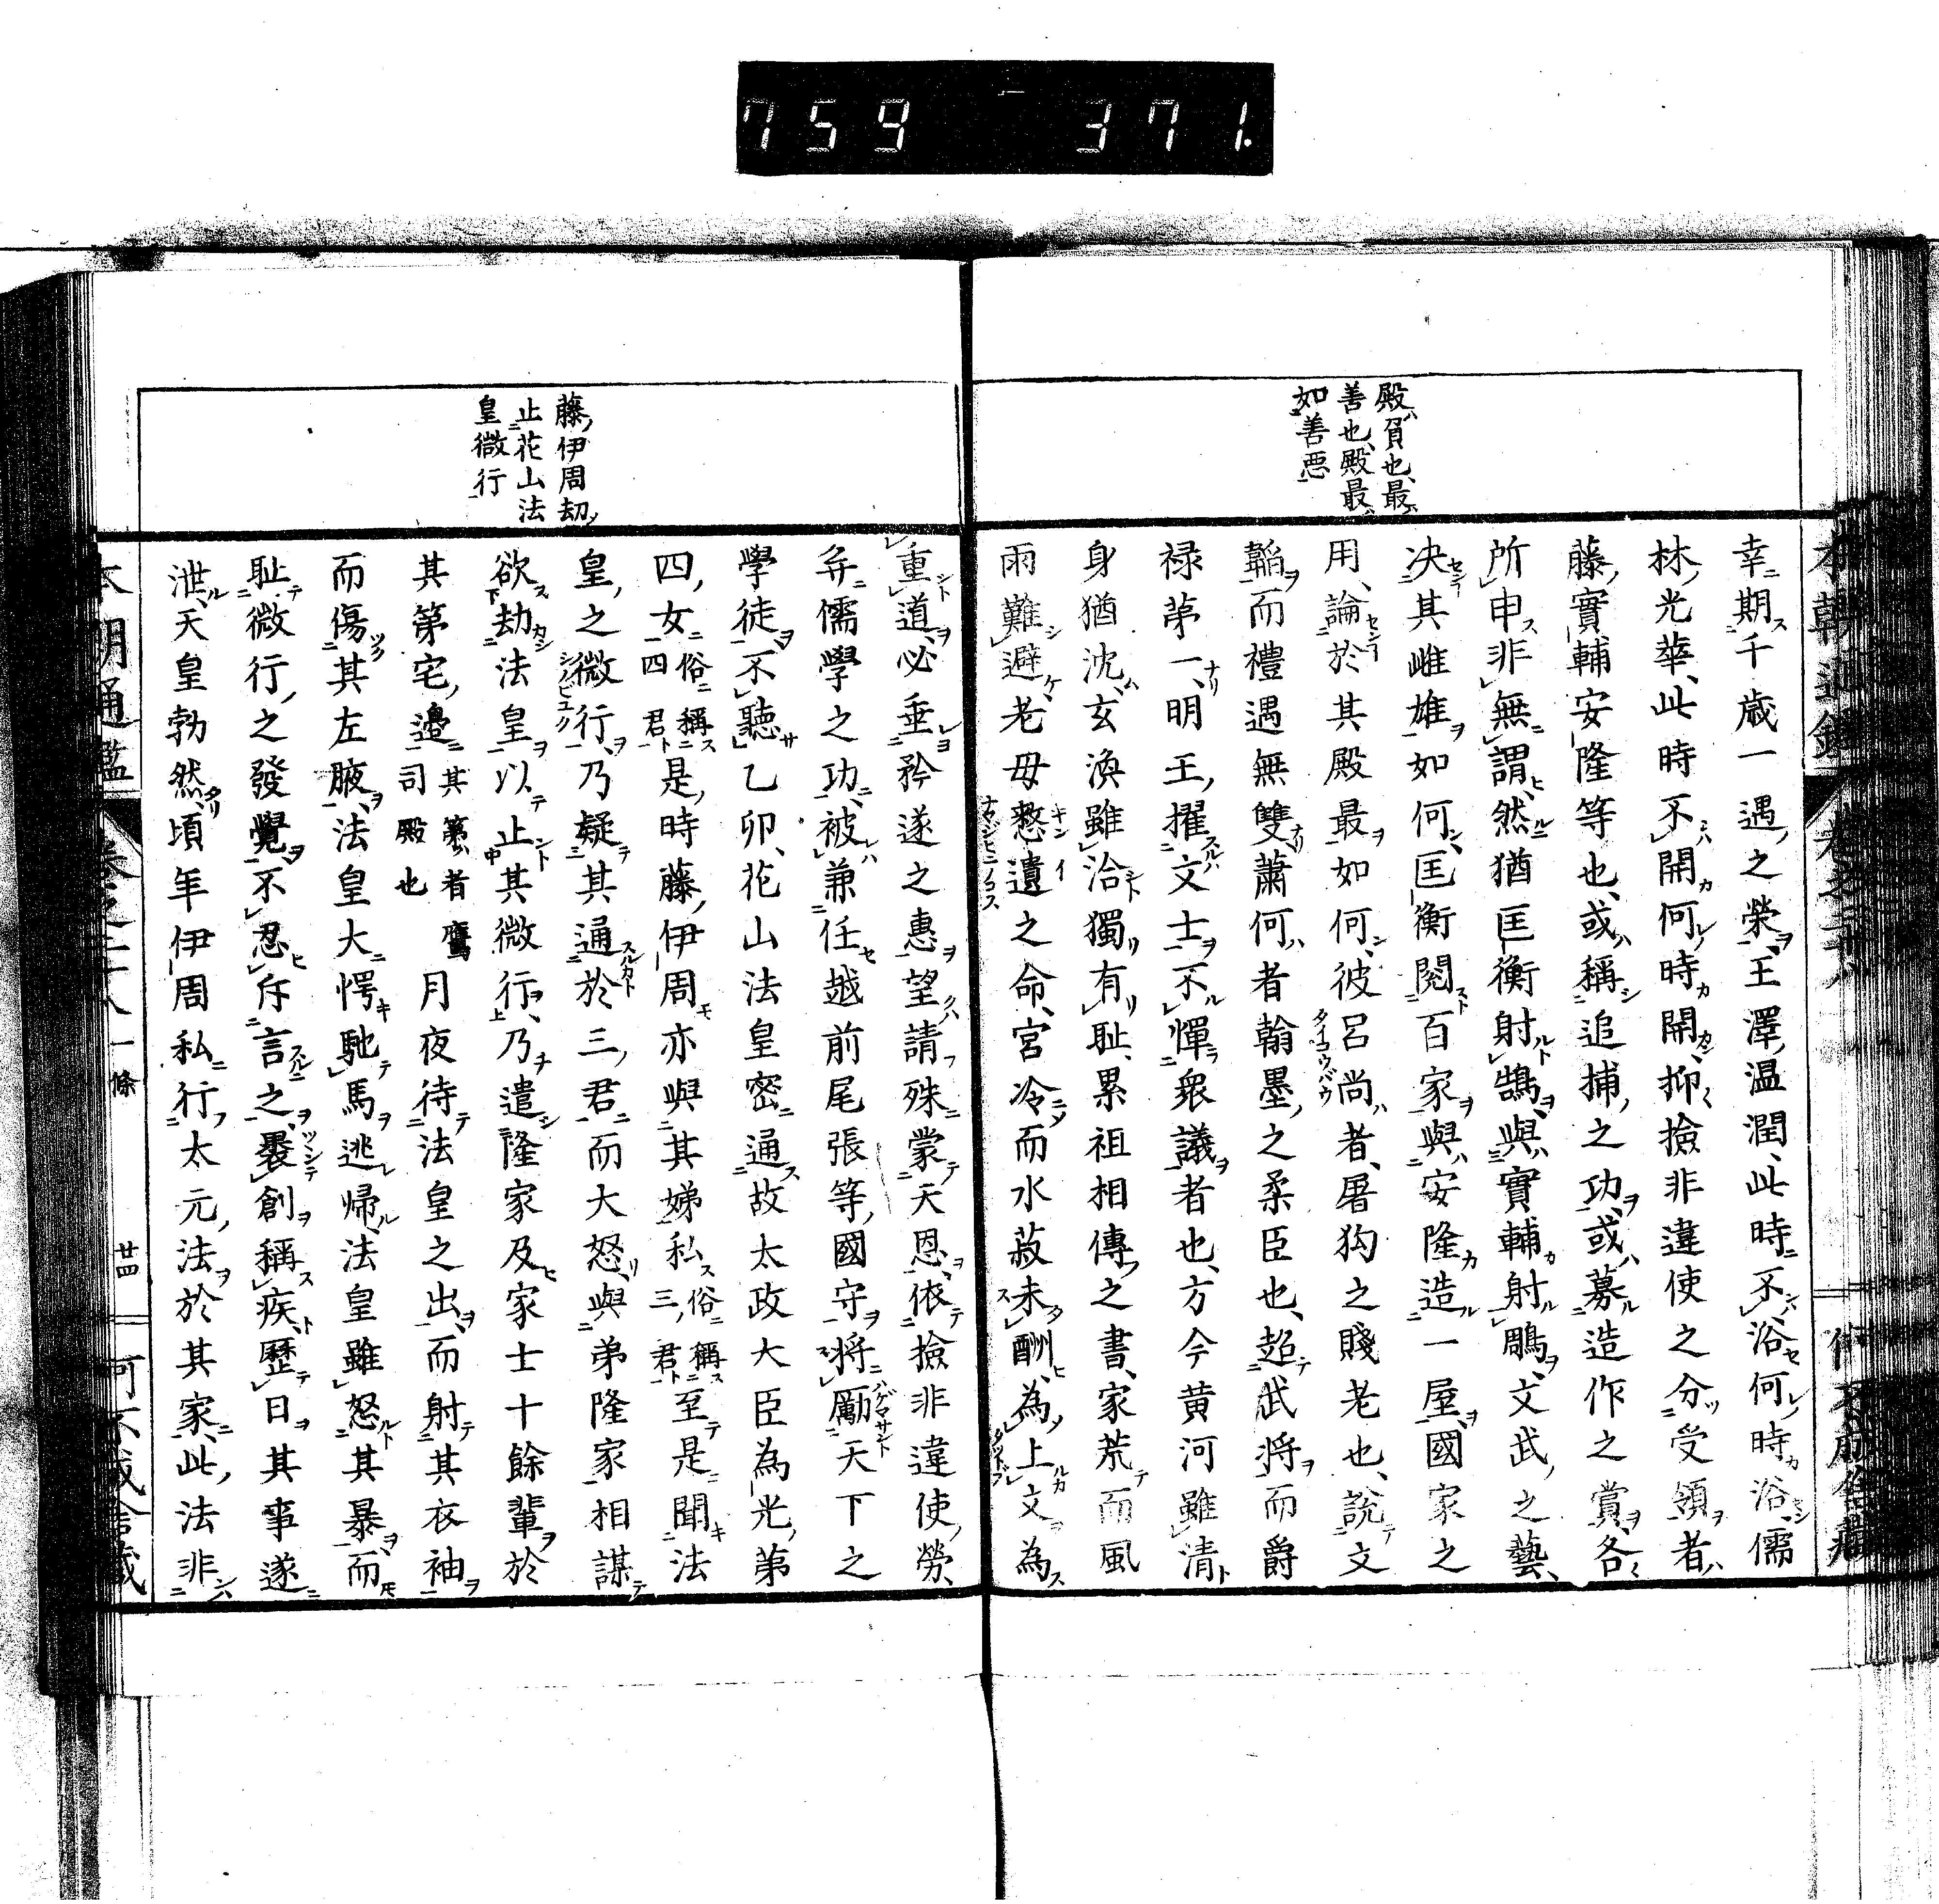 759 371.
殿負也最
善也殿最
如善悪
幸期千歳一遇之榮王澤温潤此時不浴何時浴儒
林光華此時不開何時開抑撿非違使之分受領者
藤實輔安隆等也或稱追捕之功或募造作之賞各
所申非無謂然猶匡衡射鵠與實輔射鵰文武之藝
决其雌雄如何匡衡閲百家與安隆造一屋國家之
用論於其殿最如何彼呂尚者屠狗之賤老也説文
韜而禮遇無雙蕭何者翰墨之柔臣也超武将而爵
禄苐一明王擢文士不憚衆議者也方今黄河雖清
身猶沈玄渙雖洽獨有耻累祖相傳之書家荒而風
雨難避老母憖遺之命宮冷而水菽未酬為上文為
藤伊周刧
止花山法
皇微行
重道必垂矜遂之惠望請殊蒙天恩依撿非違使勞
并儒學之功被兼任越前尾張等國守将勵天下之
學徒不聽乙卯花山法皇密通故太政大臣為光第
四女俗稱四君是時藤伊周亦與其娣私俗稱三君至是聞法
皇之微行乃疑其通於三君而大怒與弟隆家相謀
欲劫法皇以止其微行乃遣隆家及家士十餘輩於
其第宅邉其第者鷹司殿也月夜待法皇之出而射其衣袖
而傷其左腋法皇大愕馳馬逃帰法皇雖怒其暴而
耻微行之發覺不忍斥言之褁創稱疾歷日其事遂
泄天皇勃然頃年伊周私行太元法於其家此法非
本朝通鑑 卷之二十八 一條 廿四